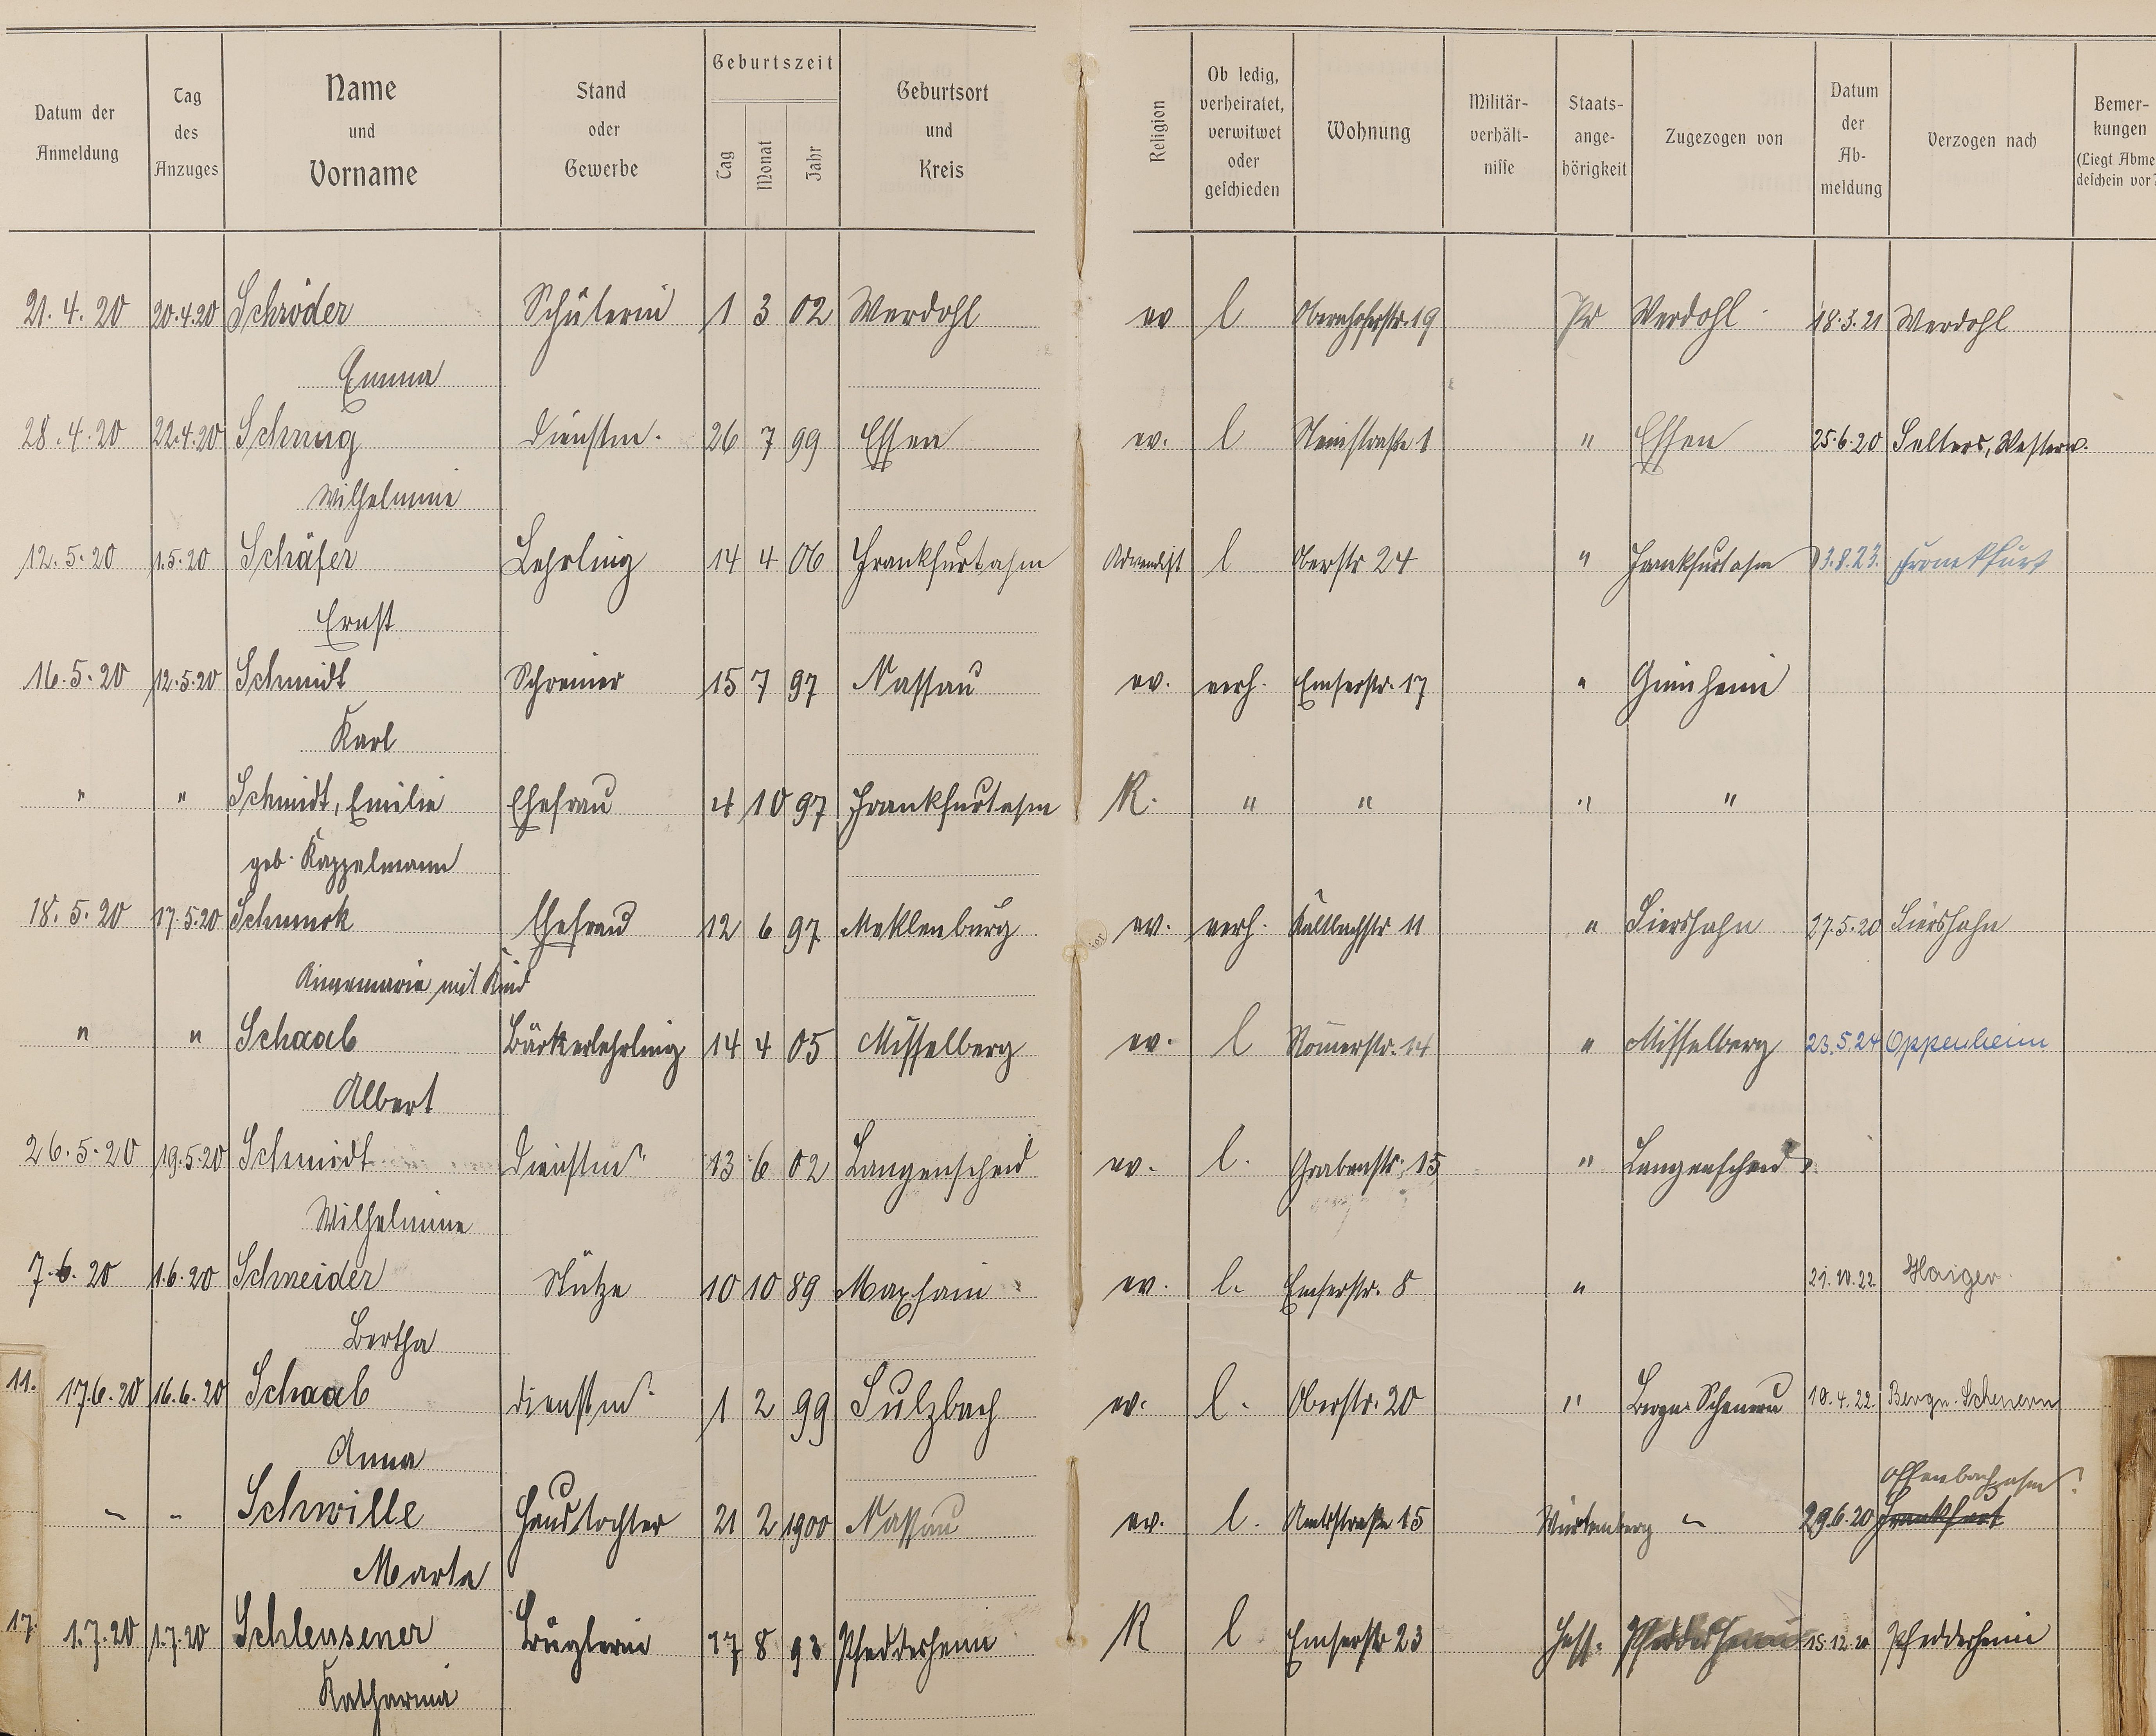 Datum der Anmeldung | Tag des Anzuges | Name und Vorname | Stand oder Gewerbe | Geburtszeit Tag Monat Jahr | Geburtsort und Kreis | Religion | Ob ledig, verheiratet, verwitwet oder geschieden | Wohnung | Militär-verhält-nisse | Staats-ange-hörigkeit | Zugezogen von | Datum der Ab-meldung | Verzogen nach | Bemer-kungen (Liegt Abme deschein vor?
21.4.20 20.4.20 Schröder Schülerin 1 3 02 Werdohl ev l Obernhoferstr. 19 Pr Werdohl 18.3.21 Werdohl
Emma
28.4.20 22.4.20 Schrug Dienstm. 26 7 99 Essen ev. l Steinstraße 1 " Essen 25.6.20 Selters, Westerw.
Wilhelmine
12.5.20 1.5.20 Schäfer Lehrling 14 4 06 Frankfurt a/m Adventist l Oberstr 24 " Frankfurt a/m 3.8.23. Frankfurt
Ernst
16.5.20 12.5.20 Schmidt Schreiner 15 7 97 Nassau ev. verh. Emserstr. 17 " Ginnheim
Karl
" " Schmidt, Emilie Ehefrau 4 10 97 Frankfurt a/m K. " " " "
geb. Kappelmann
18.5.20 17.5.20 Schmuck Ehefrau 12 6 97 Meklenburg ev. verh. Kaltbachstr 11 " Siershahn 27.5.20 Siershahn
Annemarie mit Kind
" " Schaab Bäckerlehrling 14 4 05 Misselberg ev. l Römerstr. 14 " Misselberg 23.5.24 Oppenheim
Albert
26.5.20 19.5.20 Schmidt Dienstm. 13 6 02 Langenscheid ev. l. Grabenstr. 15 " Langenscheid
Wilhelmine
7.6.20 1.6.20 Schneider Stütze 10 10 89 Maxsain ev. l. Emserstr. 8 " 21.10.22 Haiger
Bertha
11. 17.6.20 16.6.20 Schaab Dienstm. 1 2 99 Sulzbach ev. l. Oberstr. 20 " Bergn. Scheuern 10.4.22. Bergn. Scheuern
Anna
Offenbach a/m ?
" " Schwille Haustochter 21 2 1900 Nassau ev. l. Amtsstraße 15 Würtemberg " 29.6.20 Frankfurt
Marta
17. 1.7.20 1.7.20 Schleusener Büglerin 17 8 93 Pfeddersheim K l Emserstr 23 Hess. Pfeddersheim 15.12.20 Pfeddersheim
Katharina